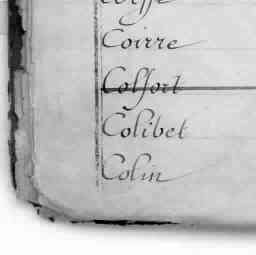 Coirre
Colfort
Colibet
Colin